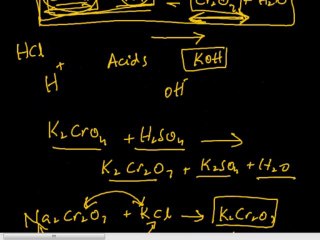 Cr₂O₇ + H₂O
HCl Acids KOH
H⁺ OH⁻
K₂CrO₄ + H₂SO₄ →
K₂Cr₂O₇ + K₂SO₄ + H₂O
Na₂Cr₂O₇ + KCl → K₂Cr₂O₇